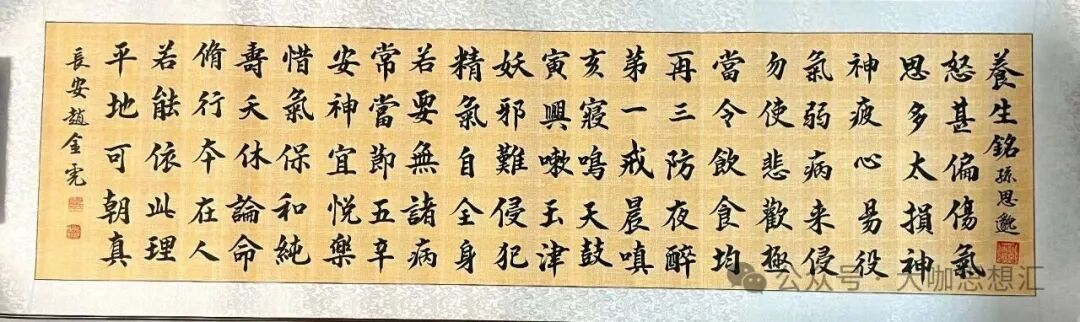 養生銘孫思邈
怒甚偏傷氣
思多太損神
神疲心易役
氣弱病来侵
勿使悲歡極
當令飲食均
再三防夜醉
第一戒晨嗔
亥寢鳴天鼓
寅興嗽玉津
妖邪難侵犯
精氣自全身
若要無諸病
常當節五辛
安神宜悦樂
惜氣保和純
壽夭休論命
脩行本在人
若能依此理
平地可朝真
長安趙金
公众号 · 大咖思想汇